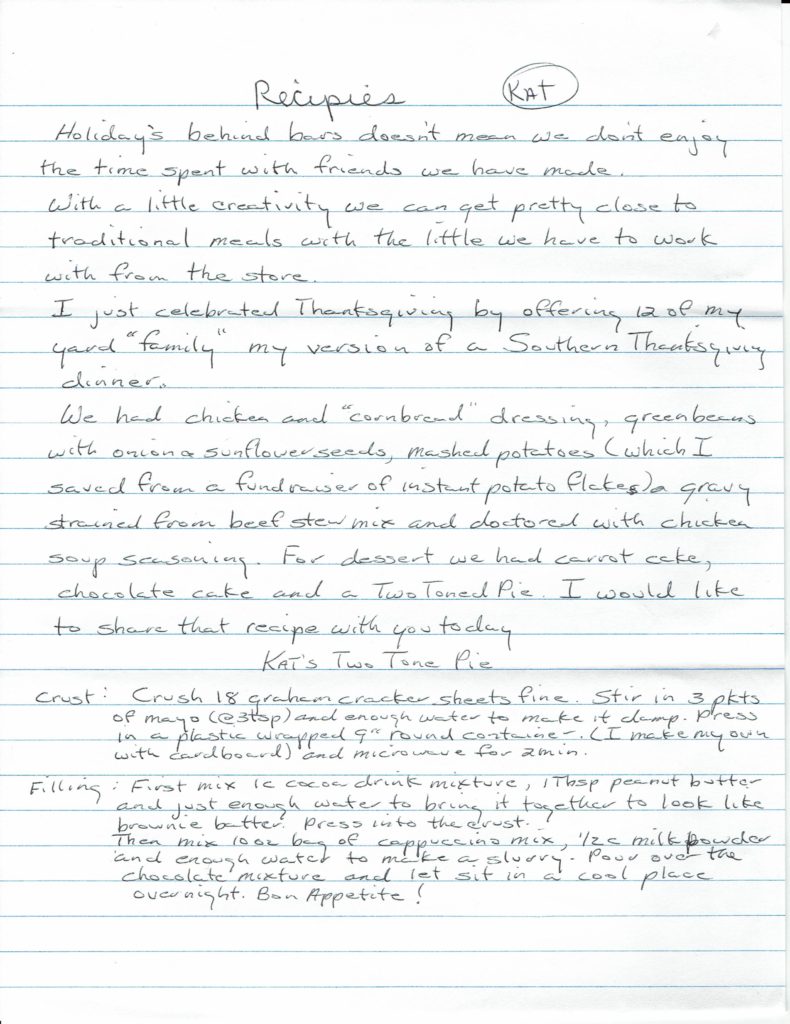 Recipies KAT
Holiday's behind bars doesn't mean we don't enjoy
the time spent with friends we have made.
With a little creativity we can get pretty close to
traditional meals with the little we have to work
with from the store.
I just celebrated Thanksgiving by offering 12 of my
yard "family" my version of a Southern Thanksgiving
dinner.
We had chicken and "cornbread" dressing, greenbeans
with onion & sunflower seeds, mashed potatoes (which I
saved from a fundraiser of instant potato flakes) & gravy
strained from beef stew mix and doctored with chicken
soup seasoning. For dessert we had carrot cake,
chocolate cake and a Two Toned Pie. I would like
to share that recipe with you today
KAT's Two Tone Pie
Crust: Crush 18 graham cracker sheets fine. Stir in 3 pkts
of mayo (@3tsp) and enough water to make it damp. Press
in a plastic wrapped 9" round container. (I make my own
with cardboard) and microwave for 2min.
Filling: First mix 1c cocoa drink mixture, 1Tbsp peanut butter
and just enough water to bring it together to look like
brownie batter. Press into the crust.
Then mix 10oz bag of cappuccino mix, 1/2c milk powder
and enough water to make a slurry. Pour over the
chocolate mixture and let sit in a cool place
overnight. Bon Appetite!